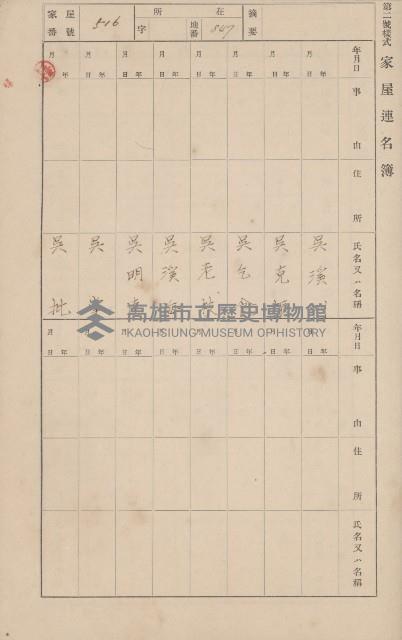 第二號樣式
家屋連名簿
摘要
所在
地番 507
字
家屋番號 516
年月日 事由 住所 氏名又ハ名稱
年月日 年月日 年月日 年月日 年月日 年月日 年月日 年月日
吳溪
吳克
吳乞
吳老
吳溪
吳明
吳
吳批
高雄市立歷史博物館
KAOHSIUNG MUSEUM OF HISTORY
年月日 事由 住所 氏名又ハ名稱
年月日 年月日 年月日 年月日 年月日 年月日 年月日 年月日